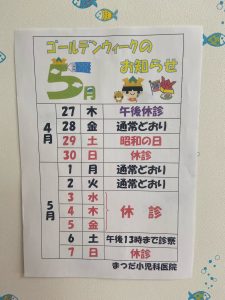 ゴールデンウィークの
お知らせ
5月
4月
27 木 午後休診
28 金 通常どおり
29 土 昭和の日
30 日 休診
5月
1 月 通常どおり
2 火 通常どおり
3 水
4 木 休診
5 金
6 土 午後13時まで診察
7 日 休診
まつだ小児科医院